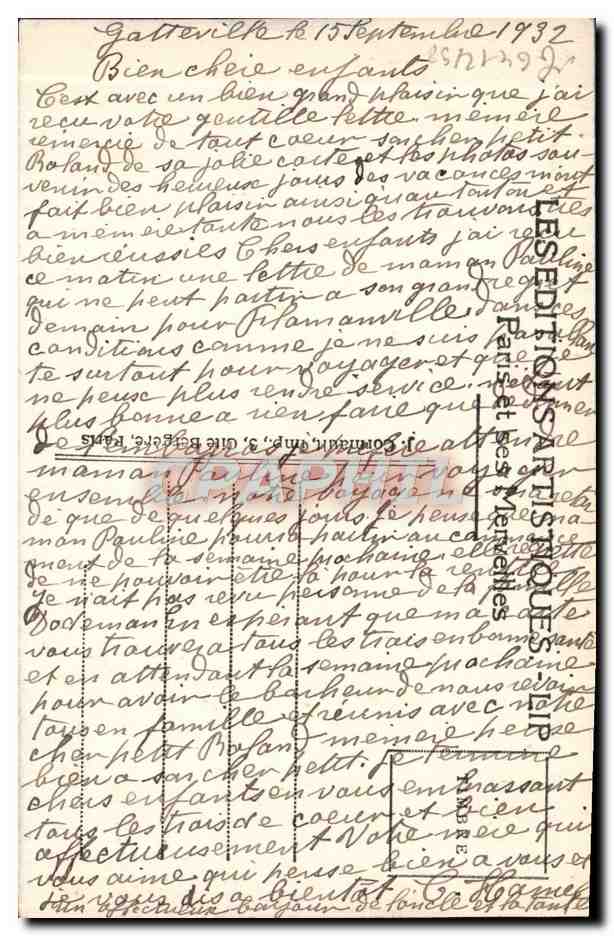 Gatteville le 15 Septembre 1932
Bien chere enfants
C'est avec un bien grand plaisir que j'ai
recu votre gentille lettre memère
remercie de tout coeur son cher petit
Roland de sa jolie carte et les photos sou-
venir des heureux jours des vacances m'ont
fait bien plaisir ainsi qu'au tonton et
a memère tante nous les trouvons
bien réussies Chers enfants j'ai recu
ce matin une lettre de maman Pauline
qui ne peut partir a son grand regret
demain pour Flamanville dans
conditions comme je ne suis pas
te surtout pour voyager et que je
ne peux plus rendre service
plus bonne a rien faire que
de l'embarras je attendre
maman Pauline pour voyager
ensemble notre voyage ne
de que de quelques jours je pense que ma-
man Pauline pourra partir au commence
ment de la semaine prochaine elle regrette
de ne pouvoir être là pour la
Je n'ait pas revu personne de la famille
Dodeman En espérant que ma
vous trouvera tous les trois en bonne santé
et en attendant la semaine prochaine
pour avoir le bonheur de nous revoir
tous en famille et réunis avec notre
cher petit Roland memère pense
bien a son cher petit. je termine
chers enfants en vous embrassant
tous les trois de coeur et bien
affectueusement Votre mère qui
vous aime qui pense bien a vous et
je vous dis a bientôt C. Hamel
un affectueux bonjour de l'oncle et la tante
LES EDITIONS ARTISTIQUES - LIP
Paris et ses Merveilles
J. Cormault, Imp., 3, Cité Bergère, Paris
TIMBRE
CPAPHIL